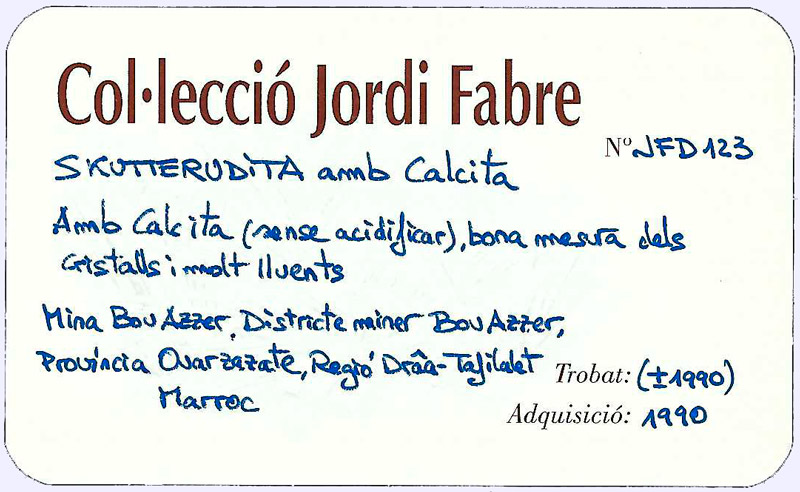 Col·lecció Jordi Fabre
Nº JFD 123
SKUTTERUDITA amb Calcita
Amb Calcita (sense acidificar), bona mesura dels
cristalls i molt lluents
Mina Bou Azzer, Districte miner Bou Azzer,
Província Ouarzazate, Regió Drâa-Tafilalet
Marroc
Trobat: (±1990)
Adquisició: 1990